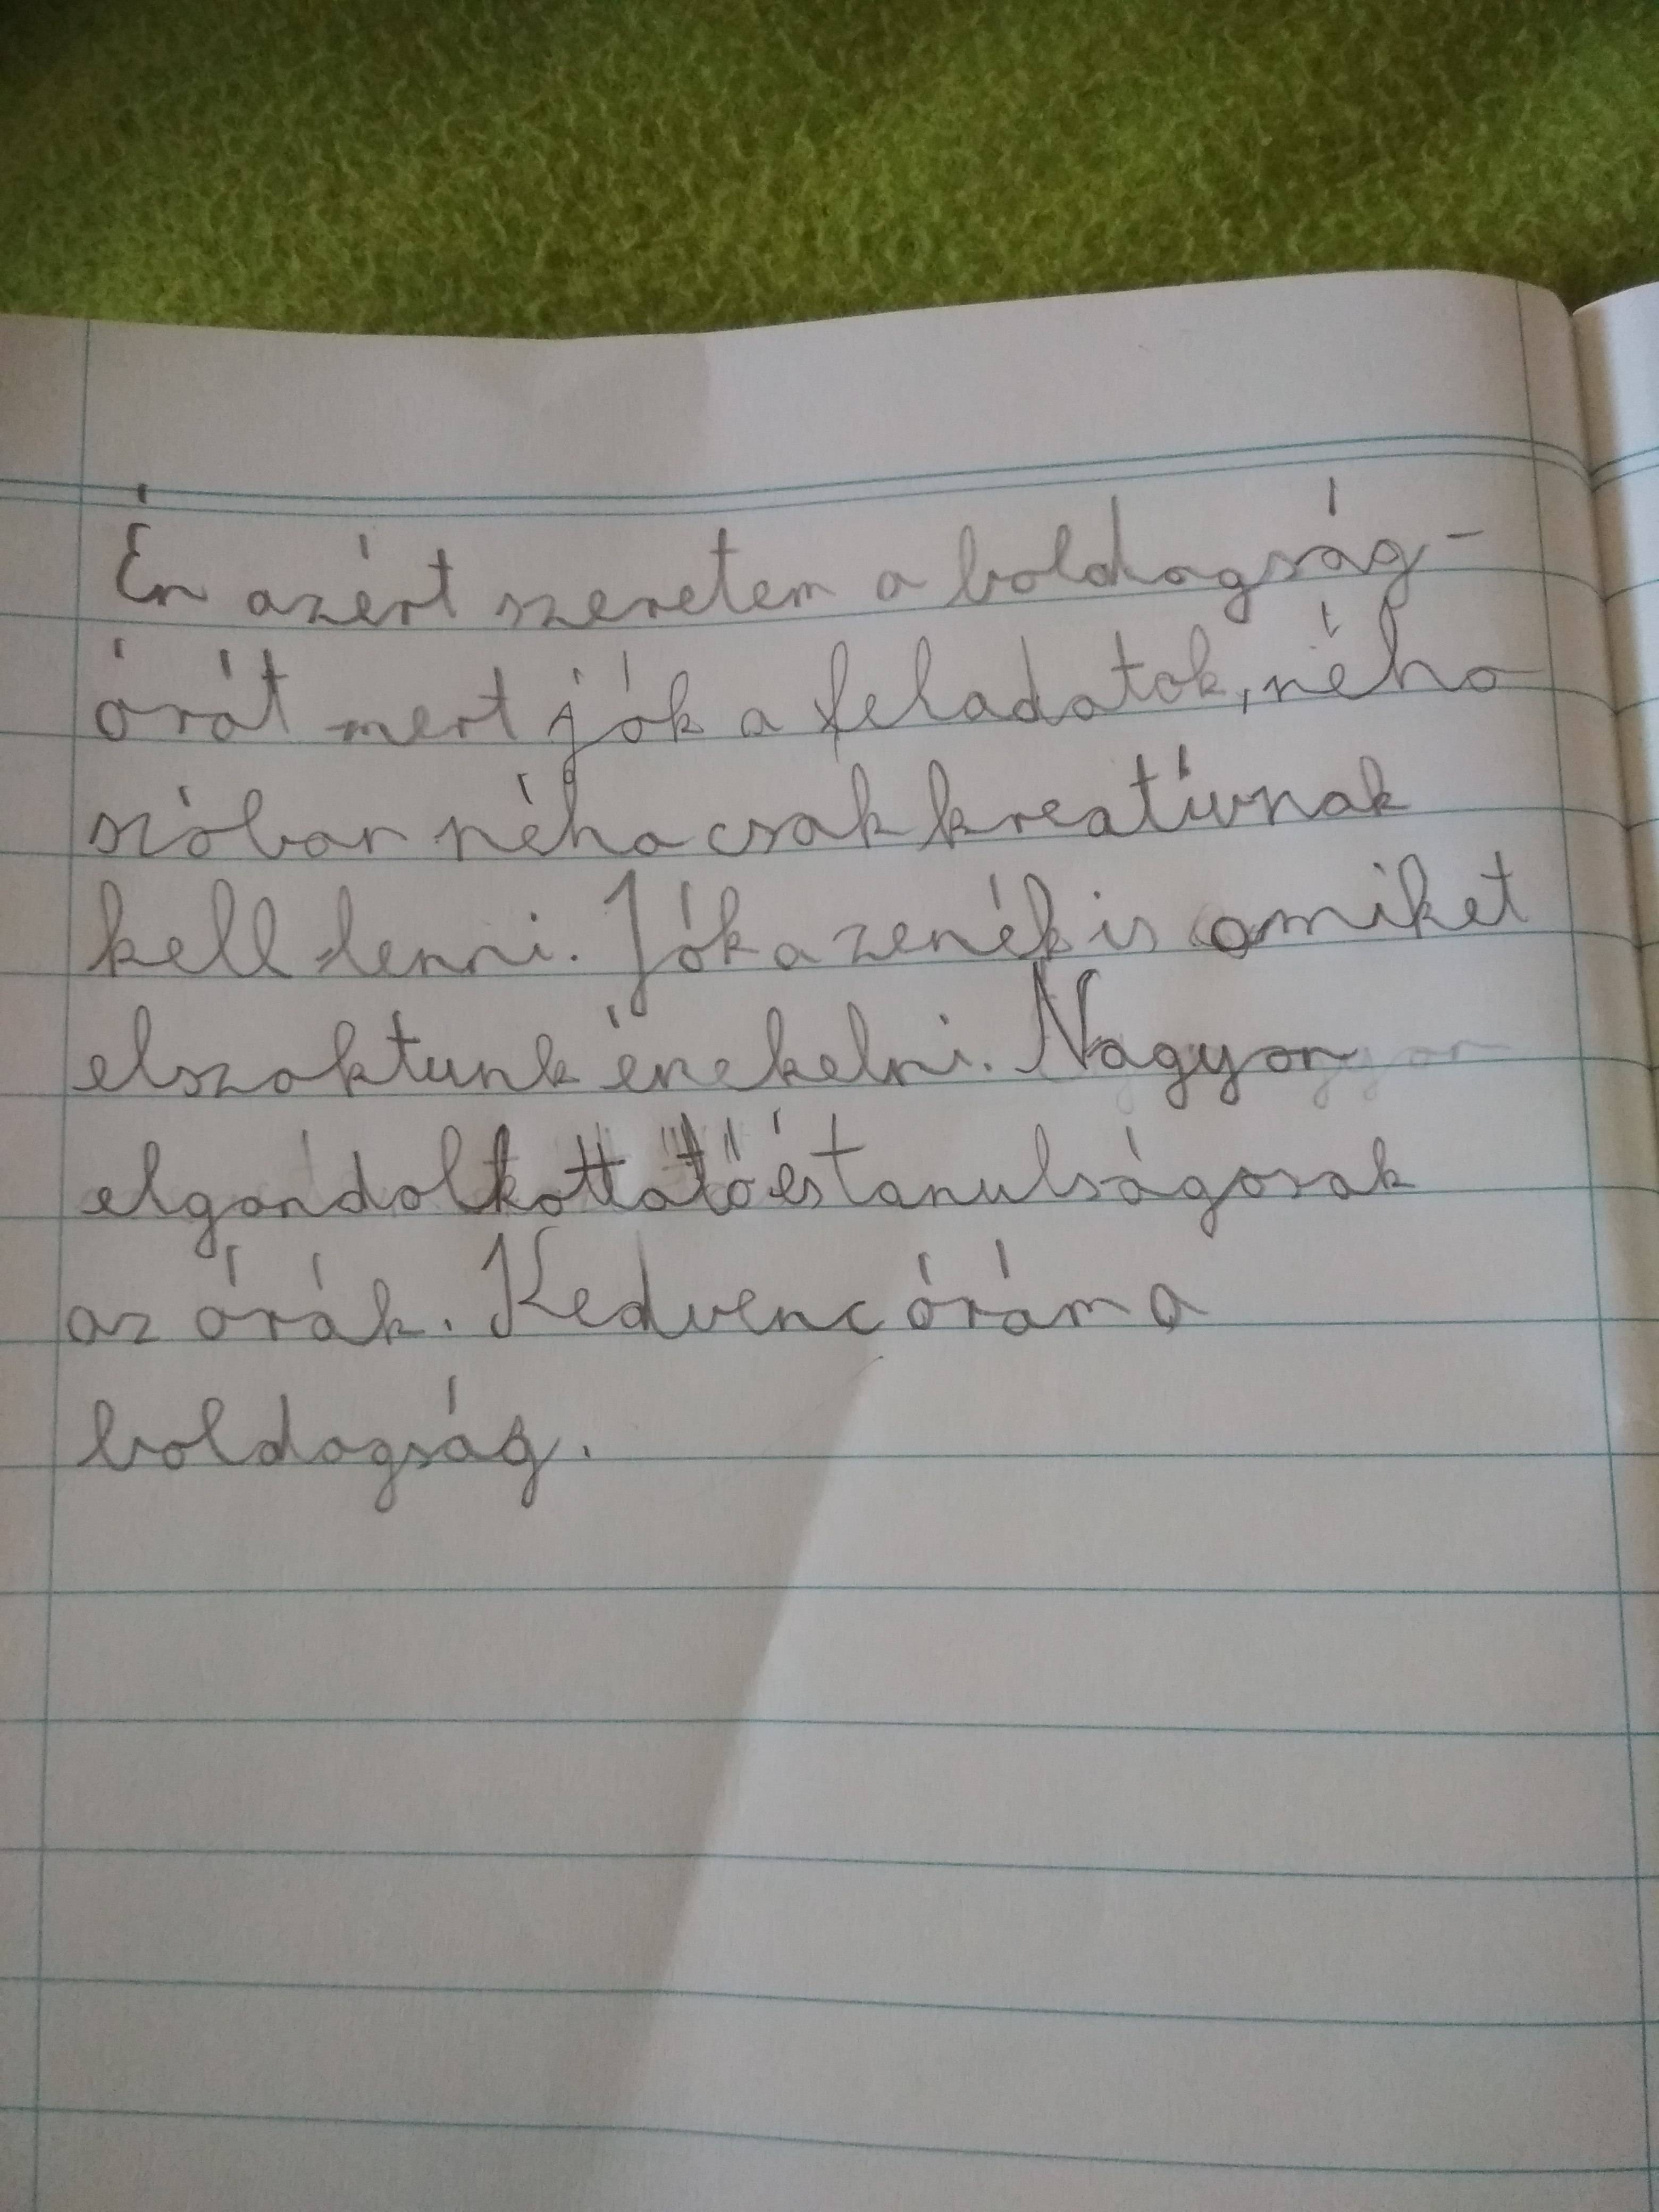 Én azért szeretem a boldogság-
órát mert jók a feladatok, néha
szóban néha csak kreatívnak
kell lenni. Jók a zenék is amiket
elszoktunk énekelni. Nagyon
elgondolkottató és tanulságosak
az órák. Kedvenc órám a
boldogság.